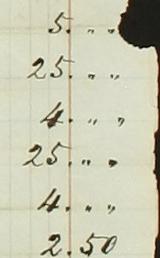 5. " "
25. " "
4. " "
25. " "
4. " "
2.50